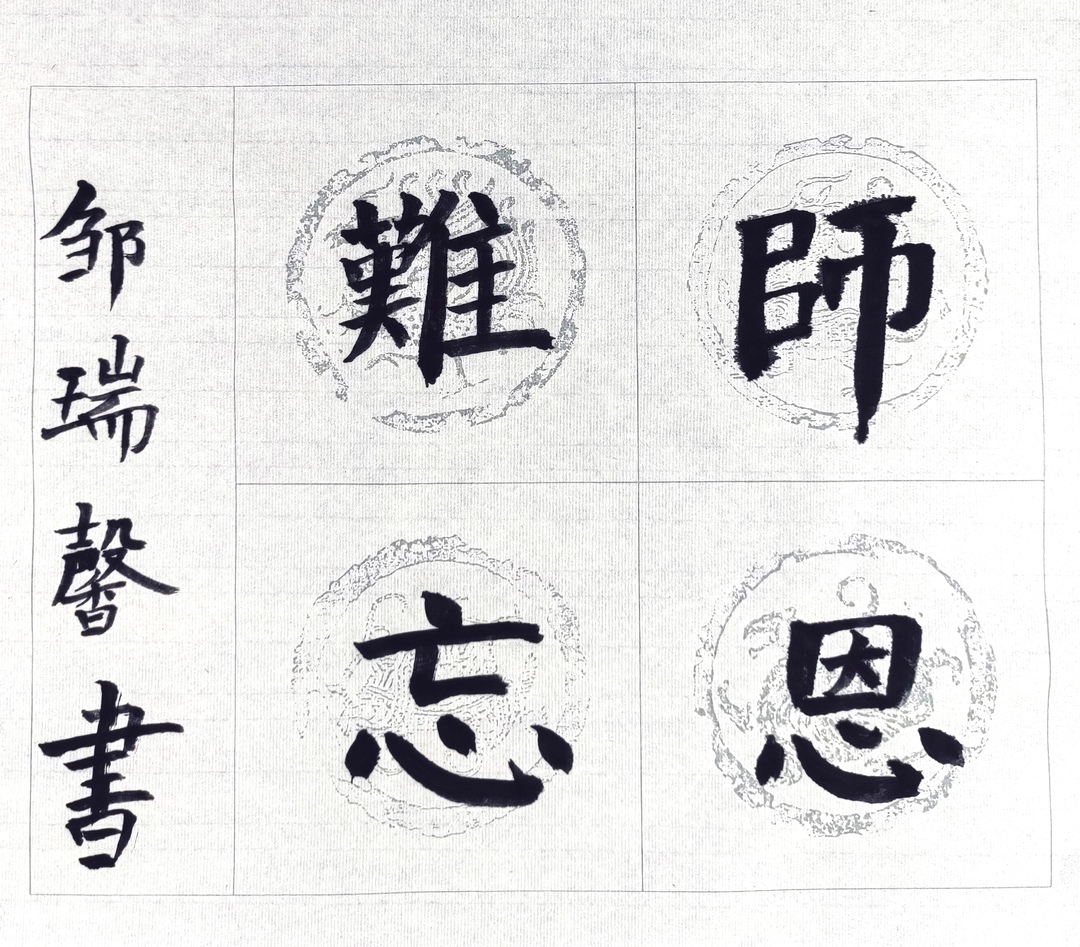 師恩
難忘
邹瑞馨書